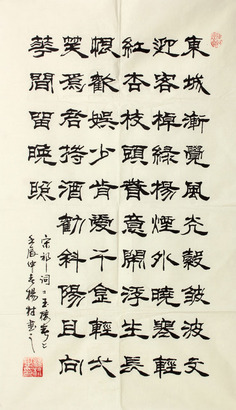 東城漸覺風光縠皺波文
迎客棹綠楊煙外曉寒輕
紅杏枝頭春意鬧浮生長
恨歡娛少肯愛千金輕弌
笑為君持酒勸斜陽且向
華間留晚照
宋祁詞玉樓春
壬辰仲春楊村書